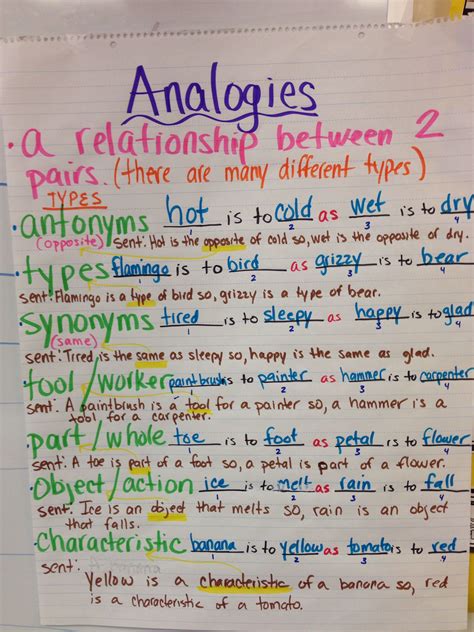 Analogies
• a relationship between 2
pairs. (there are many different types)
TYPES
• antonyms hot is to cold as wet is to dry
1 2 3 4
(opposite) sent: Hot is the opposite of cold so, wet is the opposite of dry.
• types flamingo is to bird as grizzy is to bear
1 2 3 4
sent: Flamingo is a type of bird so, grizzy is a type of bear.
synonyms tired is to sleepy as happy is to glad
1 2 3 4
(same)
sent: Tired is the same as sleepy so, happy is the same as glad.
• tool/worker paintbrush is to painter as hammer is to carpenter
1 2 3 4
sent: A paintbrush is a tool for a painter so, a hammer is a
tool for a carpenter.
• part/whole toe is to foot as petal is to flower
1 2 3 4
sent: A toe is part of a foot so, a petal is part of a flower.
• Object/action ice is to melt as rain is to fall
1 2 3 4
sent: Ice is an object that melts so, rain is an object
that falls.
• characteristic banana is to yellow as tomato is to red
1 2 3 4
sent:
Yellow is a characteristic of a banana so, red
is a characteristic of a tomato.